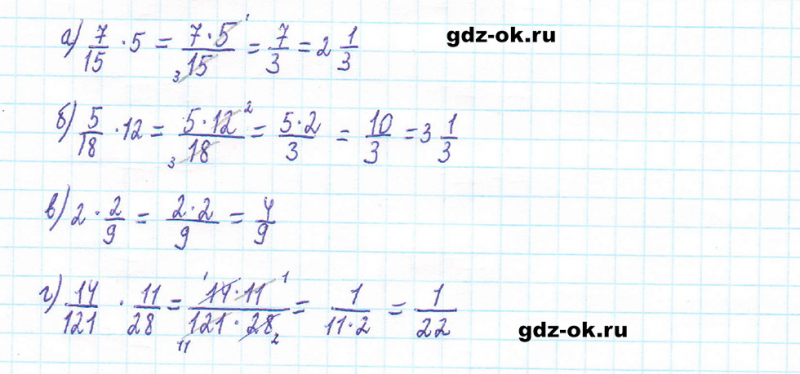 а) 7/15 · 5 = 7·5/15 = 7/3 = 2 1/3
gdz-ok.ru
б) 5/18 · 12 = 5·12/18 = 5·2/3 = 10/3 = 3 1/3
в) 2 · 2/9 = 2·2/9 = 4/9
г) 14/121 · 11/28 = 14·11/121·28 = 1/11·2 = 1/22
gdz-ok.ru